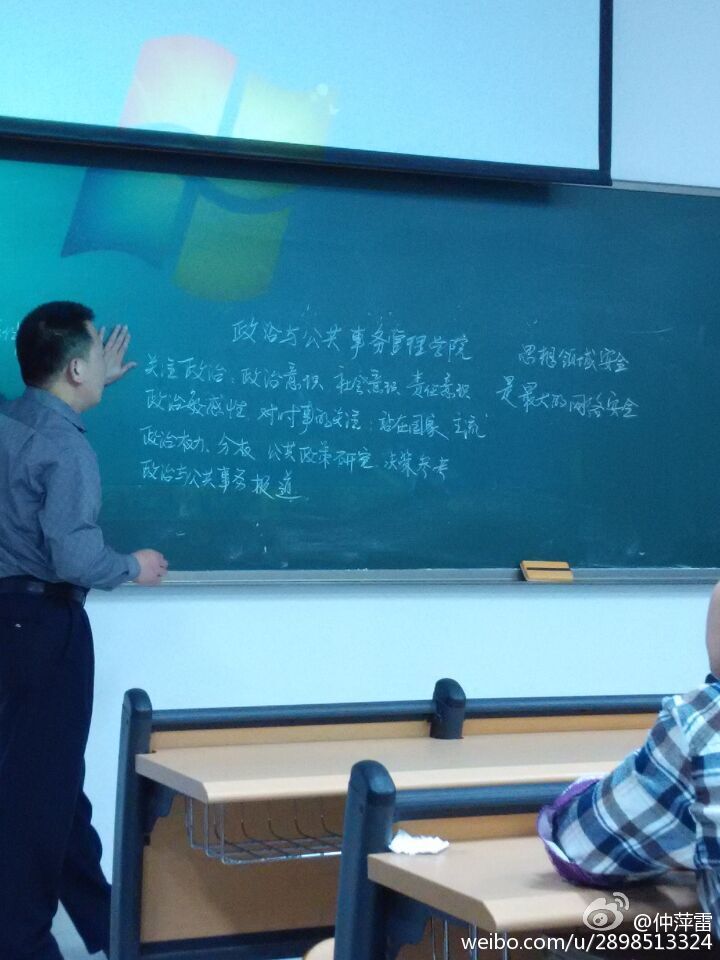 政治与公共事务管理学院
关注政治：政治意识 社会意识 责任意识
政治敏感性 对时事的关注：站在国家 主流
政治权力、分权 公共政策研究 决策参考
政治与公共事务报道
思想领域安全
是最大的网络安全
@仲萍雷
weibo.com/u/2898513324